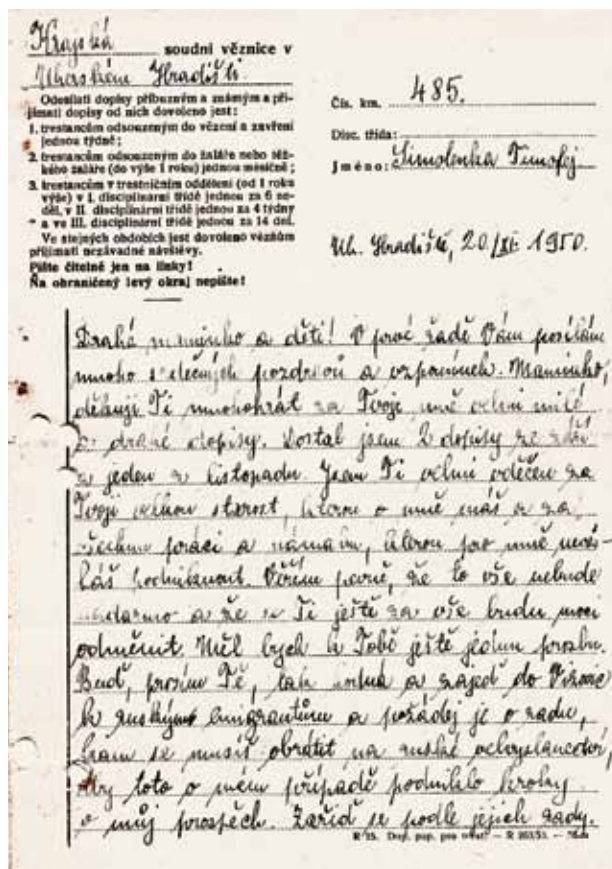 Krajská soudní věznice v
Uherském Hradišti.
Odesílati dopisy příbuzným a známým a při-
jímati dopisy od nich dovoleno jest:
1. trestancům odsouzeným do vězení a zavření
jednou týdně;
2. trestancům odsouzeným do žaláře nebo těž-
kého žaláře (do výše 1 roku) jednou měsíčně;
3. trestancům v trestničním oddělení (od 1 roku
výše) v I. disciplinární třídě jednou za 6 ne-
děl, v II. disciplinární třídě jednou za 4 týdny
a ve III. disciplinární třídě jednou za 14 dní.
Ve stejných obdobích jest dovoleno vězňům
přijímati nezávadné návštěvy.
Pište čitelně jen na linky!
Na ohraničený levý okraj nepište!
Čís. km. 485.
Disc. třída:
Jméno: Simolenka Timofej
Uh. Hradiště, 20/XI. 1950.
Drahá maminko a děti! V prvé řadě Vám posílám
mnoho srdečných pozdravů a vzpomínek. Maminko,
děkuji Ti mnohokrát za Tvoje mně velmi milé
a drahé dopisy. Dostal jsem 2 dopisy ze září
a jeden z listopadu. Jsem Ti velmi vděčen za
Tvoji velkou starost, kterou o mně máš a za
všechnu práci a námahu, kterou pro mně
podniknout. Věřím pevně, že to vše nebude
nadarmo a že se Ti ještě za vše budu moci
odměnit. Měl bych k Tobě ještě jednu prosbu.
Buď, prosím Tě, tak hodná a zajeď do Vizovic
k ruským emigrantům a požádej je o radu,
kam se musíš obrátit na ruské velvyslanectví,
aby toto o mém případě podniklo kroky
v můj prospěch. Zařiď se podle jejich rady.